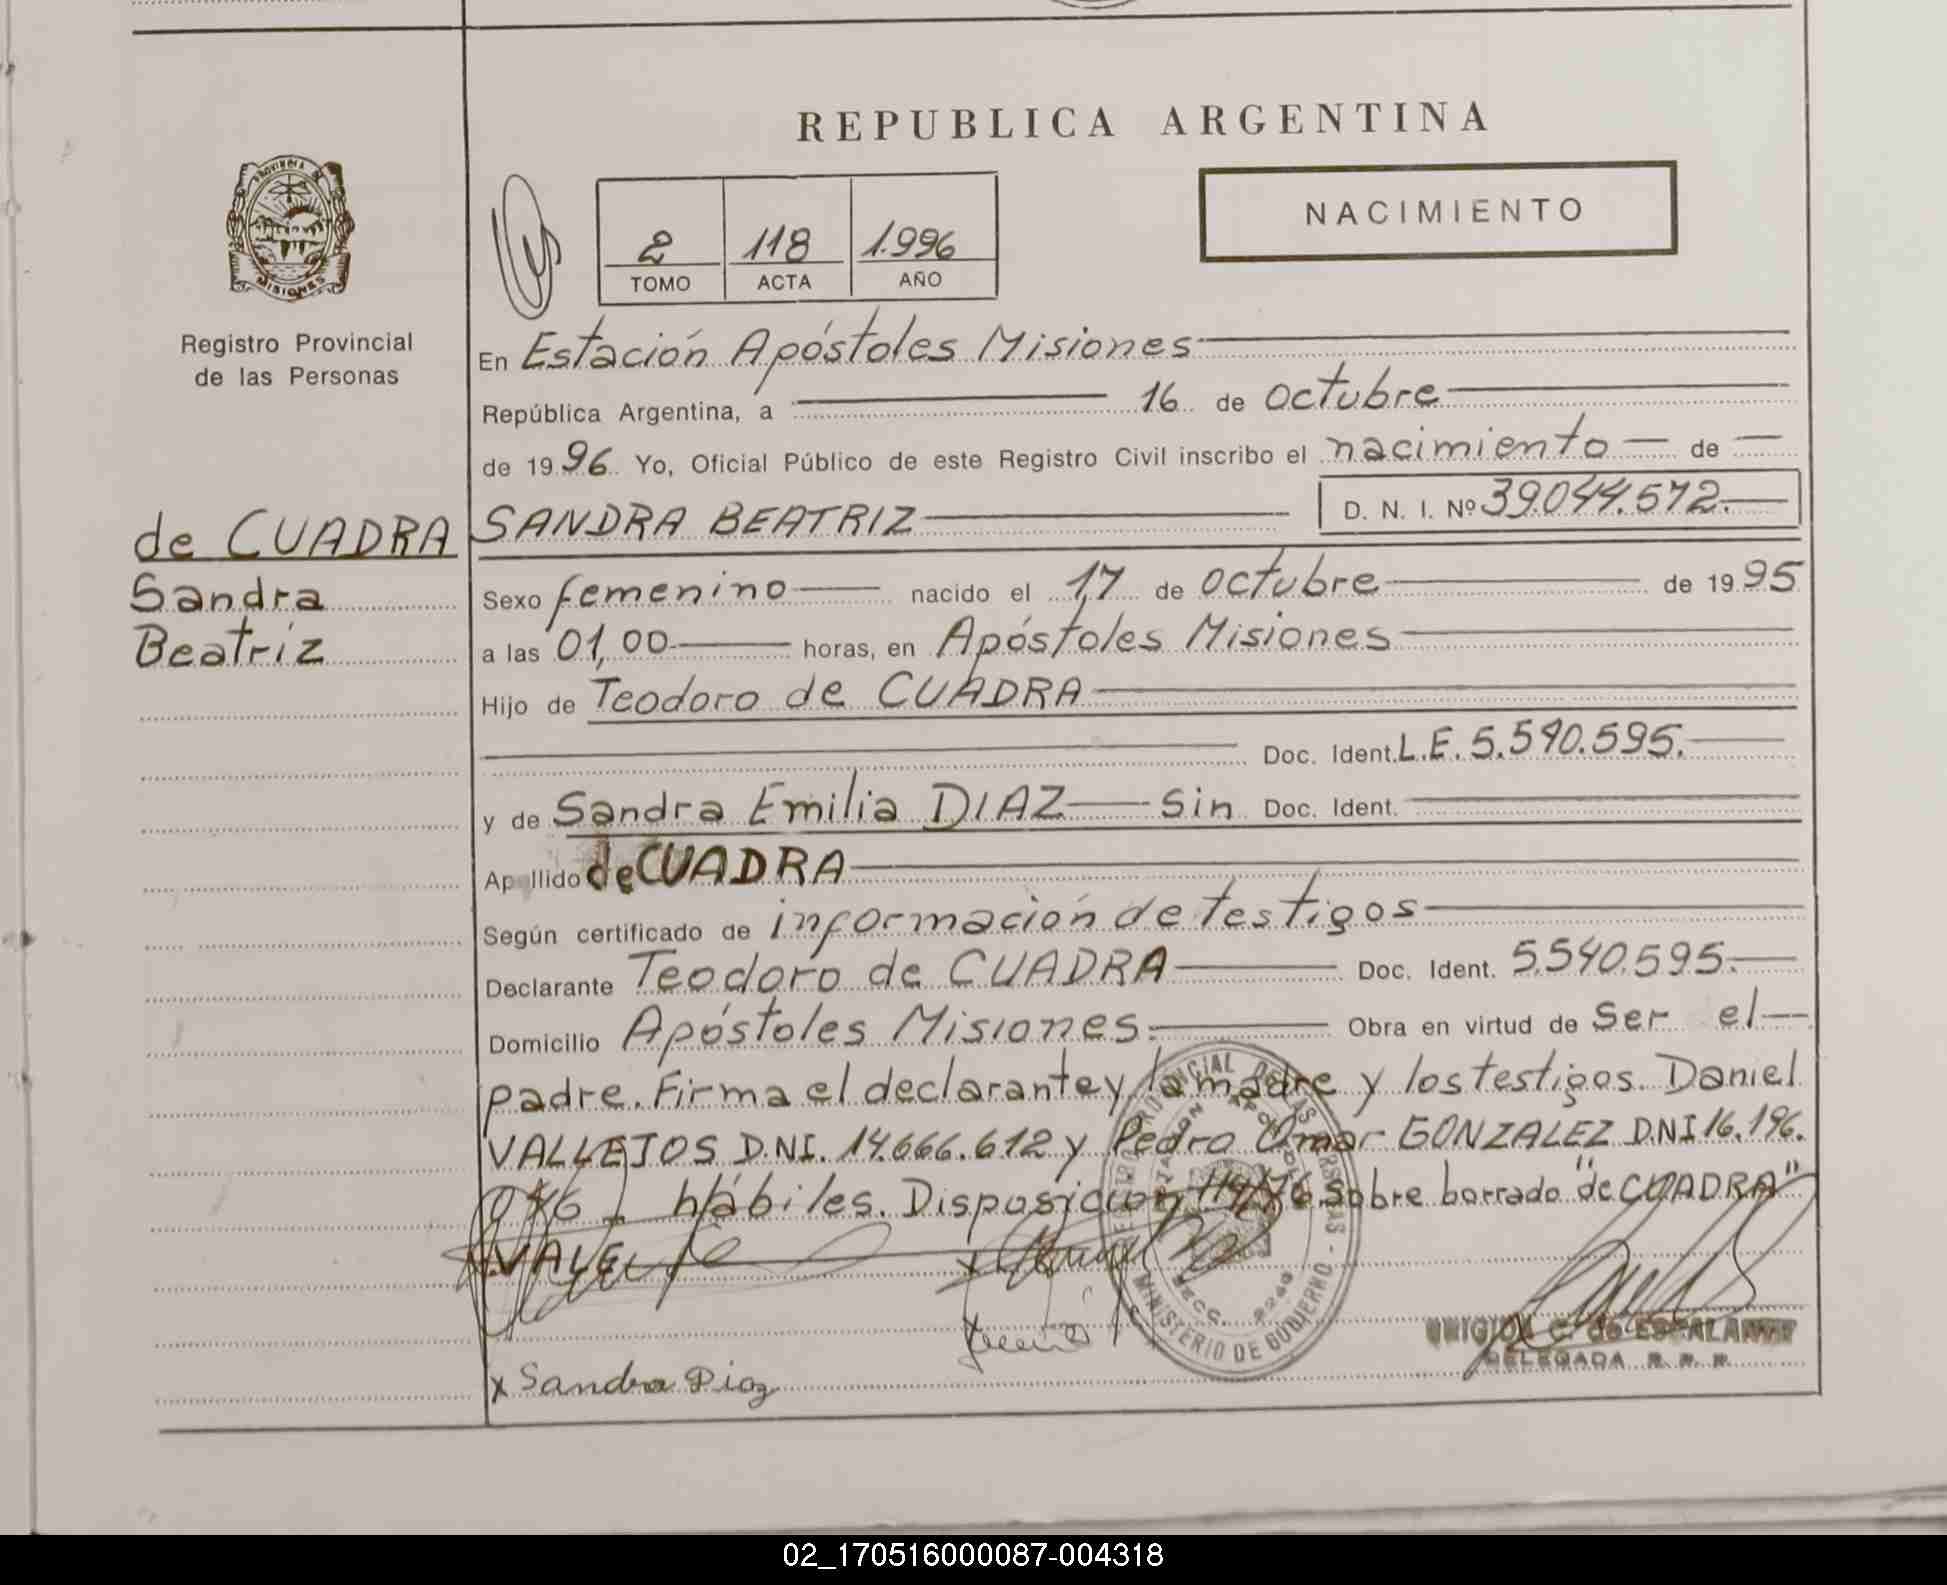 REPUBLICA ARGENTINA
PROVINCIA DE
MISIONES
Registro Provincial
de las Personas
NACIMIENTO
2 118 1.996
TOMO ACTA AÑO
En Estación Apóstoles Misiones
República Argentina, a 16 de octubre
de 1996 Yo, Oficial Público de este Registro Civil inscribo el nacimiento de
de CUADRA SANDRA BEATRIZ D. N. I. Nº 39.044.572.
Sandra Sexo femenino nacido el 17 de octubre de 1995
Beatriz a las 01,00 horas, en Apóstoles Misiones
Hijo de Teodoro de CUADRA
Doc. Ident. L.E. 5.540.595.
y de Sandra Emilia DIAZ Sin Doc. Ident.
Apellido de CUADRA
Según certificado de información de testigos
Declarante Teodoro de CUADRA Doc. Ident. 5.540.595.
Domicilio Apóstoles Misiones. Obra en virtud de Ser el
padre. Firma el declarante y la madre y los testigos. Daniel
VALLEJOS D.NI. 14.666.612 y Pedro Omar GONZALEZ D.NI 16.196.
hábiles. Disposición Sobre borrado "de CUADRA"
VALE
MINISTERIO DE GOBIERNO
C. de ESCALANTE
DELEGADA R. P. P.
x Sandra Diaz
02_170516000087-004318